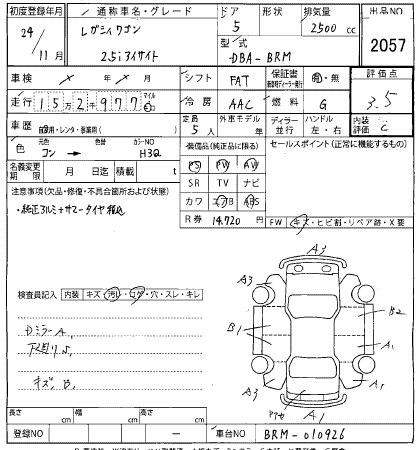 初度登録年月 通称車名・グレード ドア 形状 排気量 出品NO
24/11月 レガシィワゴン 5 2500cc 2057
2.5iアイサイト 型式 DBA-BRM
車検 シフト FAT 保証書 有・無 評価点
走行 152977 マイル 冷房 AAC 燃料 G 3.5
車歴 自家用・レンタ・事業用( ) 定員 5人 外車モデル年式 ディラー 並行 ハンドル 左・右 内装評価 C
色 元色 コン → 色替 カラーNO H3Q 装備品(純正品に限る) セールスポイント(正常に機能するもの)
名義変更期限 月 日迄 積載 t PS PW AW
SR TV ナビ
注意事項(欠品・修復・不具合箇所および状態) カワ エアB ABS
・純正アルミ+サマータイヤ積込 R券 14,720円
FW キズ・ヒビ割・リペア跡・X要
検査員記入 内装 キズ・汚レ・コゲ・穴・スレ・キレ
Dミラー A1
下廻り S1
キズ、B1
A3
A3 A3
B1 B2
A1
A1 A1
A1
長さ cm 幅 cm 高さ cm
登録NO ー 車台NO BRM-010926